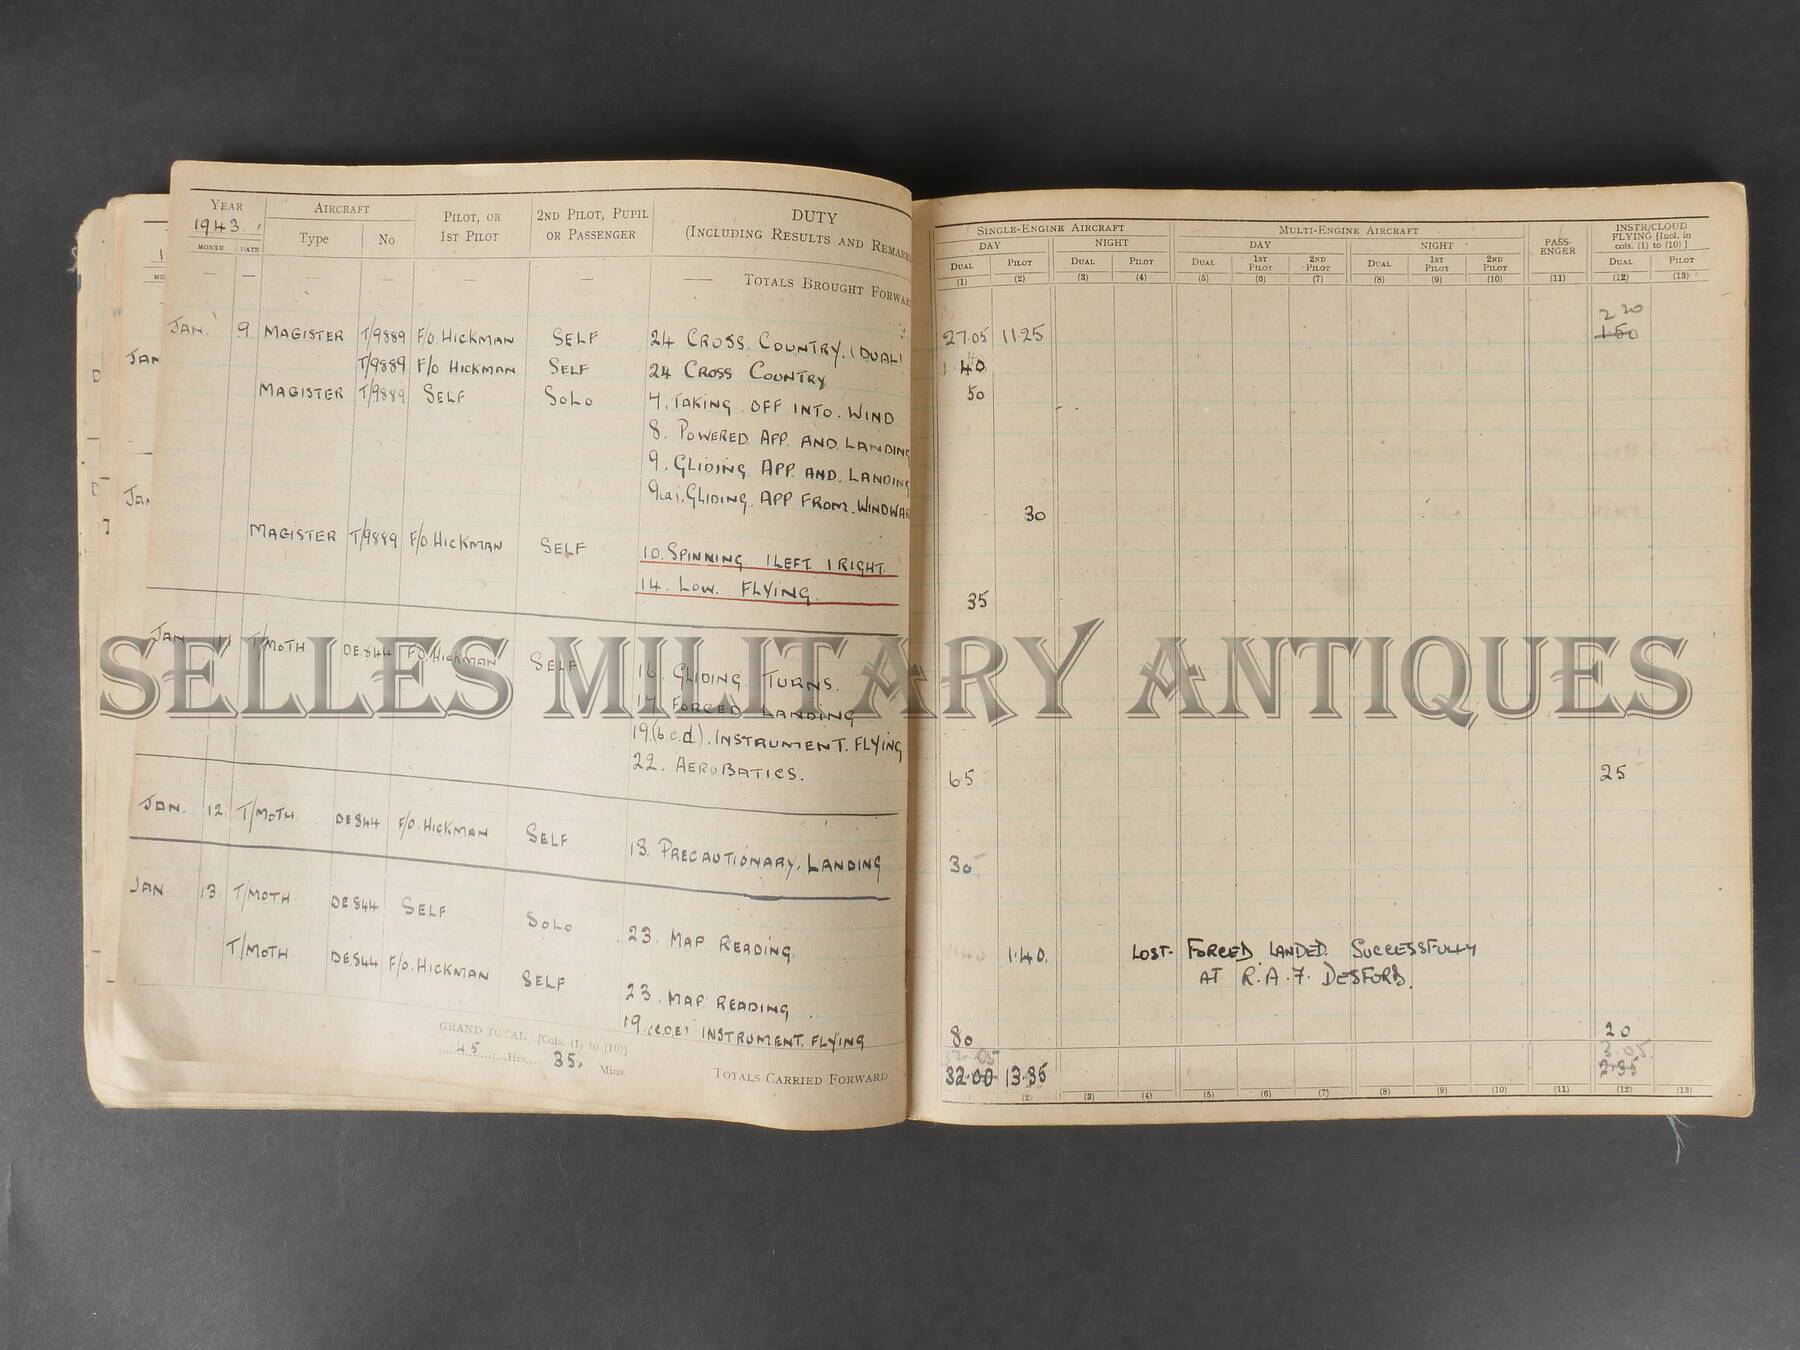 YEAR AIRCRAFT PILOT, OR 2ND PILOT, PUPIL DUTY
1943. Type No 1ST PILOT OR PASSENGER (INCLUDING RESULTS AND REMARK
MONTH DATE
— — — — — — —— TOTALS BROUGHT FORWAR
JAN. 9. MAGISTER T/9889 F/O. HICKMAN SELF 24 CROSS. COUNTRY. (DUAL)
T/9889 F/O HICKMAN SELF 24 CROSS COUNTRY
MAGISTER T/9889 SELF SOLO 7. TAKING OFF INTO. WIND
8. POWERED. APP. AND. LANDING
9. GLIDING. APP. AND. LANDING
9(a). GLIDING. APP FROM. WINDWAR
MAGISTER T/9889 F/O. HICKMAN SELF 10. SPINNING 1 LEFT. 1 RIGHT.
14. LOW. FLYING.
JAN. 11. T/MOTH DE844 F/O. HICKMAN SELF 16. GLIDING TURNS.
17. FORCED LANDING
19.(b.c.d). INSTRUMENT. FLYING
22. AEROBATICS.
JAN. 12. T/MOTH. DE844 F/O. HICKMAN SELF 13. PRECAUTIONARY. LANDING
JAN 13. T/MOTH DE844 SELF SOLO 23. MAP READING.
T/MOTH DE844 F/O. HICKMAN SELF 23. MAP READING.
19. (C.D.E) INSTRUMENT. FLYING
GRAND TOTAL [Cols. (1) to (10)]
45 Hrs. 35. Mins.
TOTALS CARRIED FORWARD
SINGLE-ENGINE AIRCRAFT MULTI-ENGINE AIRCRAFT PASS-ENGER INSTR/CLOUD FLYING [Incl. in cols. (1) to (10)]
DAY NIGHT DAY NIGHT
DUAL PILOT DUAL PILOT DUAL 1ST PILOT 2ND PILOT DUAL 1ST PILOT 2ND PILOT DUAL PILOT
(1) (2) (3) (4) (5) (6) (7) (8) (9) (10) (11) (12) (13)
2 20
27.05 11.25 1.50
1.40
50
30
35
65 25
30
1.40 1.40. LOST- FORCED. LANDED. SUCCESSFULLY
AT R.A.F. DESFORD.
80 20
32.05 3.05.
32.00 13.35 2.35
(2) (3) (4) (5) (6) (7) (8) (9) (10) (11) (12) (13)
SELLES MILITARY ANTIQUES